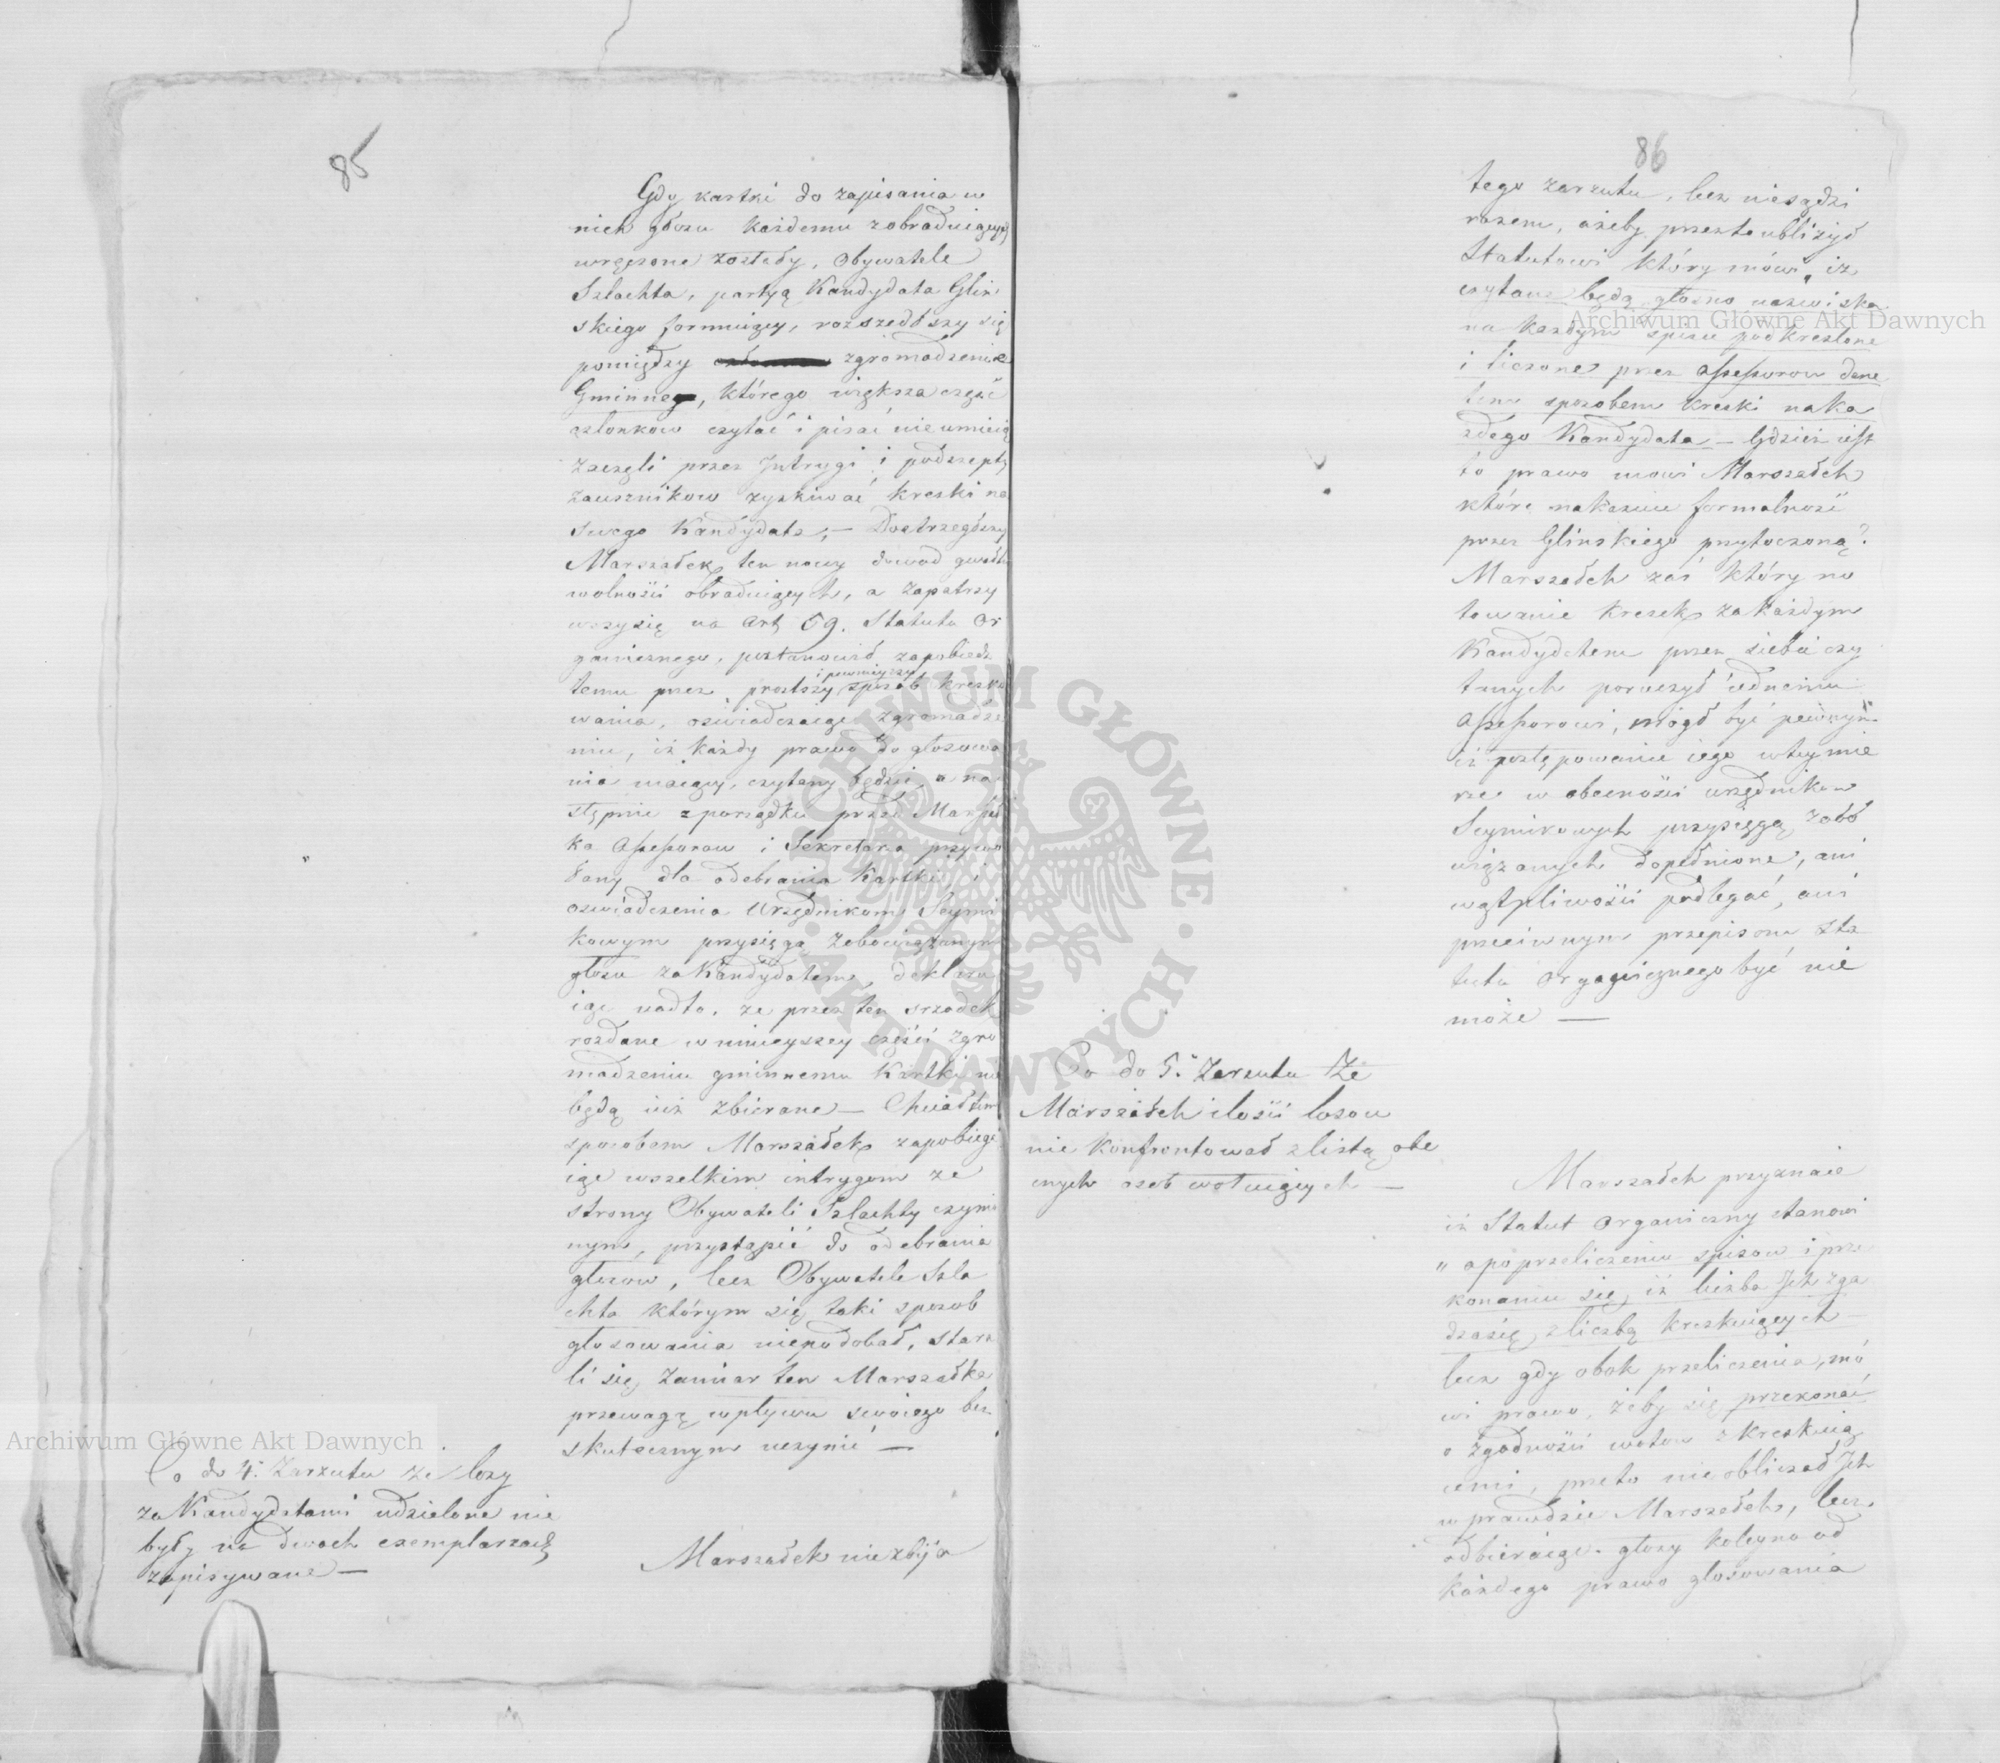 85
Gdy kartki do zapisania w
nich głosu każdemu z obraduiących
wręczone zostały, Obywatele
Szlachta, partyą Kandydata Gliń
skiego formuiący, rozszedłszy się
pomiędzy zgromadzenie
Gminne, którego większa część
członków czytać i pisać nie umieią
zaczęli przez Intrygi i podszepty
zauszników zyskiwać kreski na
swego Kandydata, — Dostrzegłszy
Marszałek ten nowy dowod gwałtu
wolności obraduiących, a zapatrzy
wszysię na Art 69. Statutu Or
ganicznego, postanowił zapobiedz
temu przez prostszy i pewnieyszy sposób kresko
wania, oświadczaiąc zgromadze
niu, iż każdy prawo do głosowa
nia maiący, czytany będzie a na
stępnie z porządku przed Marszał
ka Assessorow i Sekretarza przywo
łany dla odebrania Kartki, i
oświadczenia Urzędnikom Seymi
kowym przysięgą zobowiązanym
głosu za Kandydatem, deklaru
iąc nadto, że przez ten srzodek
rozdane w mnieyszey części zgro
madzeniu gminnemu Kartki nie
będą iuż zbierane — Chciał tym
sposobem Marszałek zapobiega
iąc wszelkim intrygom ze
strony Obywateli Szlachty czynio
nym, przystąpić do odebrania
głosów, lecz Obywatele Szla
chta którym się taki sposob
głosowania niepodobał, stara
li się zamiar ten Marszałka
przewagą wpływu swoiego bez
skutecznym uczynić —
Co do 4. Zarzutu że losy
za Kandydatami udzielone nie
były na dwoch exemplarzach
zapisywane —
Marszałek nie zbija
86
tego zarzutu, lecz nie sądzi
razem, ażeby przezto ubliżył
Statutowi który mówi, iż
czytane będą głosno nazwiska
na każdym spisie podkreślone
i liczone przez Assessorow dane
tem sposobem kreski na ka
żdego Kandydata — Gdzież iest
to prawo mowi Marszałek
które nakazuie formalność
przez Glinskiego przytoczoną?
Marszałek zaś który no
towanie kresek za każdym
Kandydatem przez siebie czy
tanych poruczył iednemu
Assessorowi, mógł być pewnym
iż postępowanie iego w tey mie
rze w obecności urzędnikow
Seymikowych przysięgą zobo
wiązanych dopełnione, ani
wątpliwości podlegać, ani
przeciwnym przepisom Sta
tutu Organicznego być nie
może —
Co do 5. Zarzutu że
Marszałek ilości losow
nie konfrontował z listą obe
cnych osob wotuiących —
Marszałek przyznaie
iż Statut Organiczny stanowi
„ a po przeliczeniu spisow i prze
konaniu się, iż liczba Ich zga
dza się z liczbą kreskuiących —
lecz gdy obok przeliczenia, mó
wi prawo, żeby się przekonać
o zgodności wotow z kreskuią
cemi, przeto nie obliczał Ich
w prawdzie Marszałek, lecz
odbieraiąc głosy koleyno od
każdego prawo głosowania
Archiwum Główne Akt Dawnych
Archiwum Główne Akt Dawnych
ARCHIWUM GŁÓWNE · AKT DAWNYCH ·